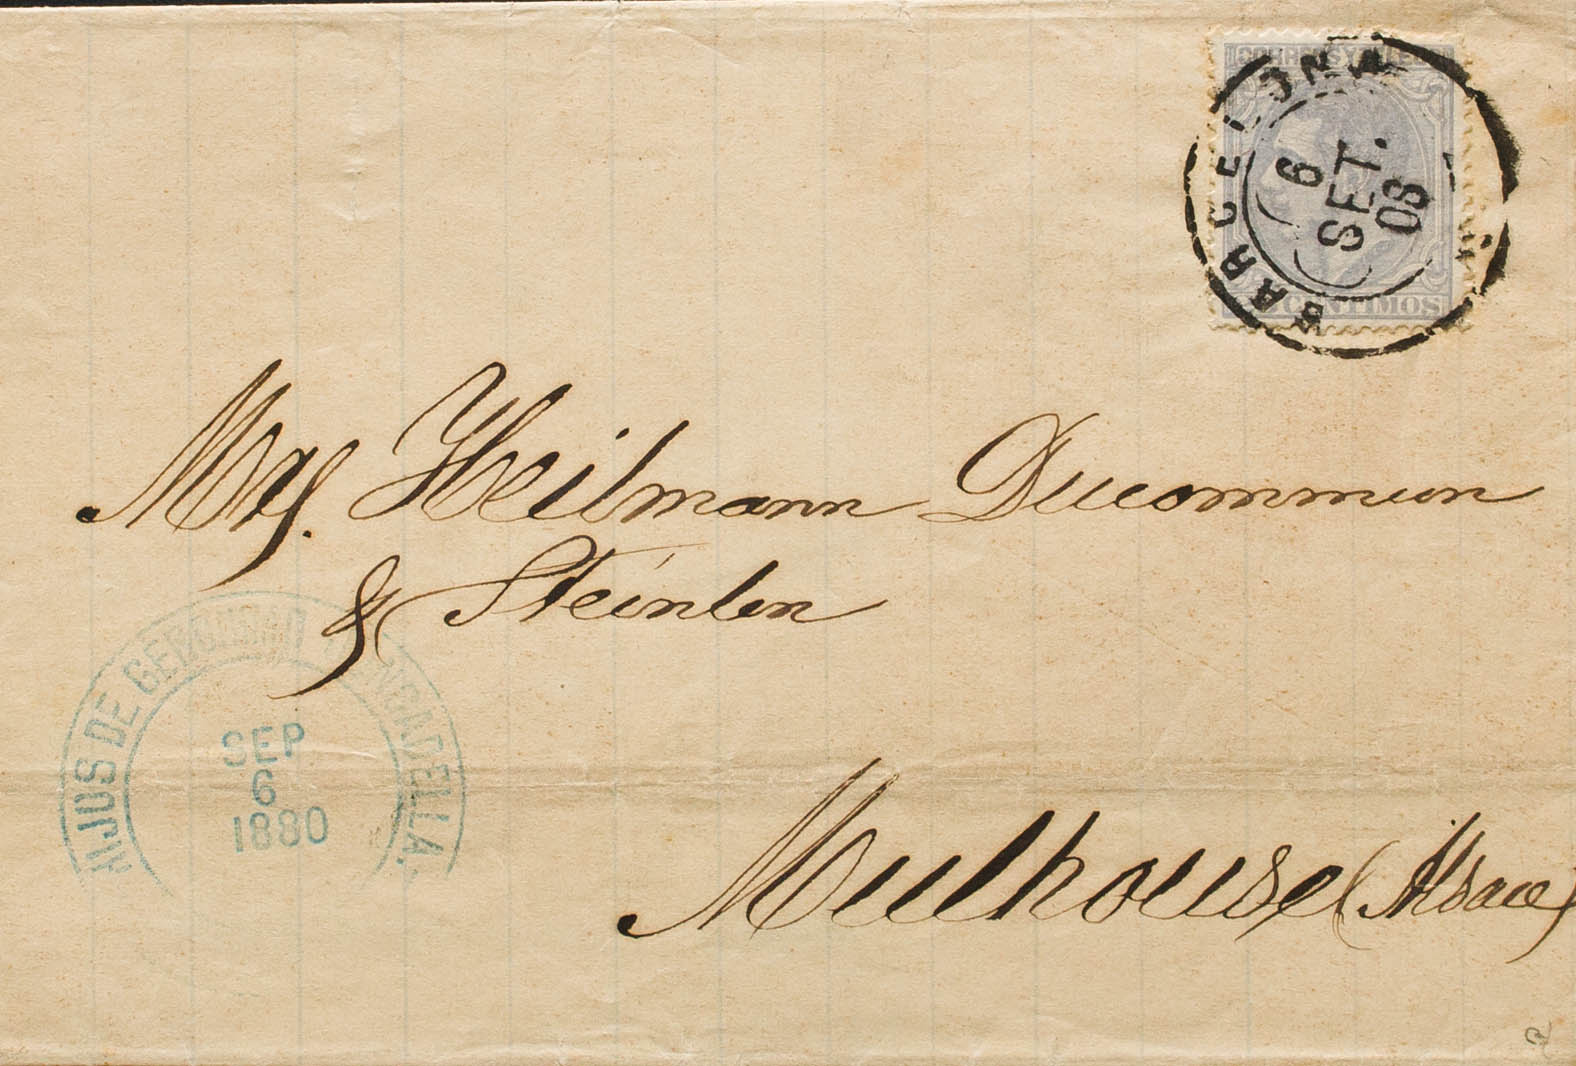 CORREOS Y
BARCELONA
6
SET.
08
CENTIMOS
Mrs. Heilmann Ducommun
& Steinlen
HIJOS DE GERONIMO JUNCADELLA.
SEP
6
1880
Mulhouse (Alsace)